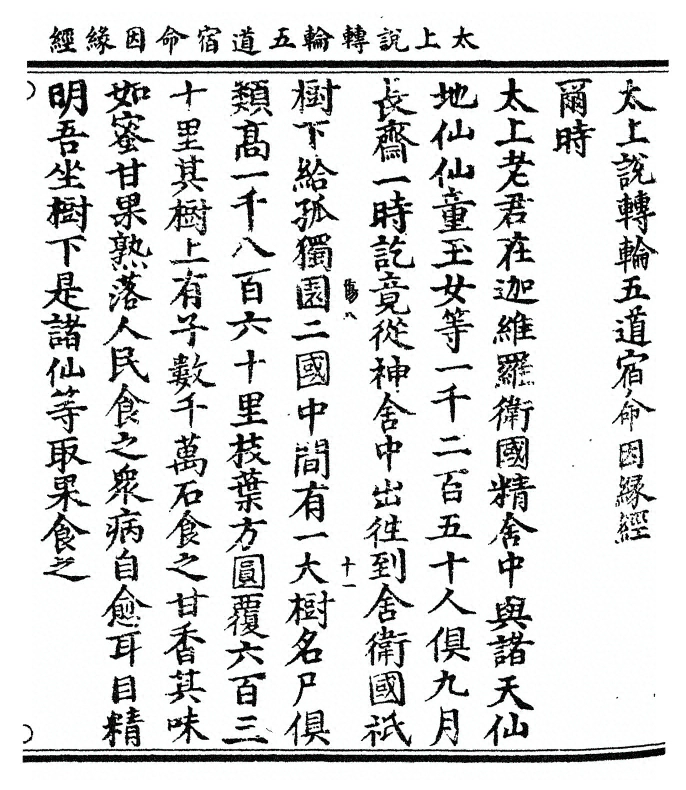 太上說轉輪五道宿命因緣經
太上說轉輪五道宿命因緣經
爾時
太上老君在迦維羅衛國精舍中與諸天仙
地仙仙童玉女等一千二百五十人俱九月
長齋一時訖竟從神舍中出徃到舍衛國祇
樹下給孤獨園二國中間有一大樹名尸俱
類高一千八百六十里枝葉方圓覆六百三
十里其樹上有子數千萬石食之甘香其味
如蜜甘果熟落人民食之衆病自愈耳目精
明吾坐樹下是諸仙等取果食之
傷八
十一